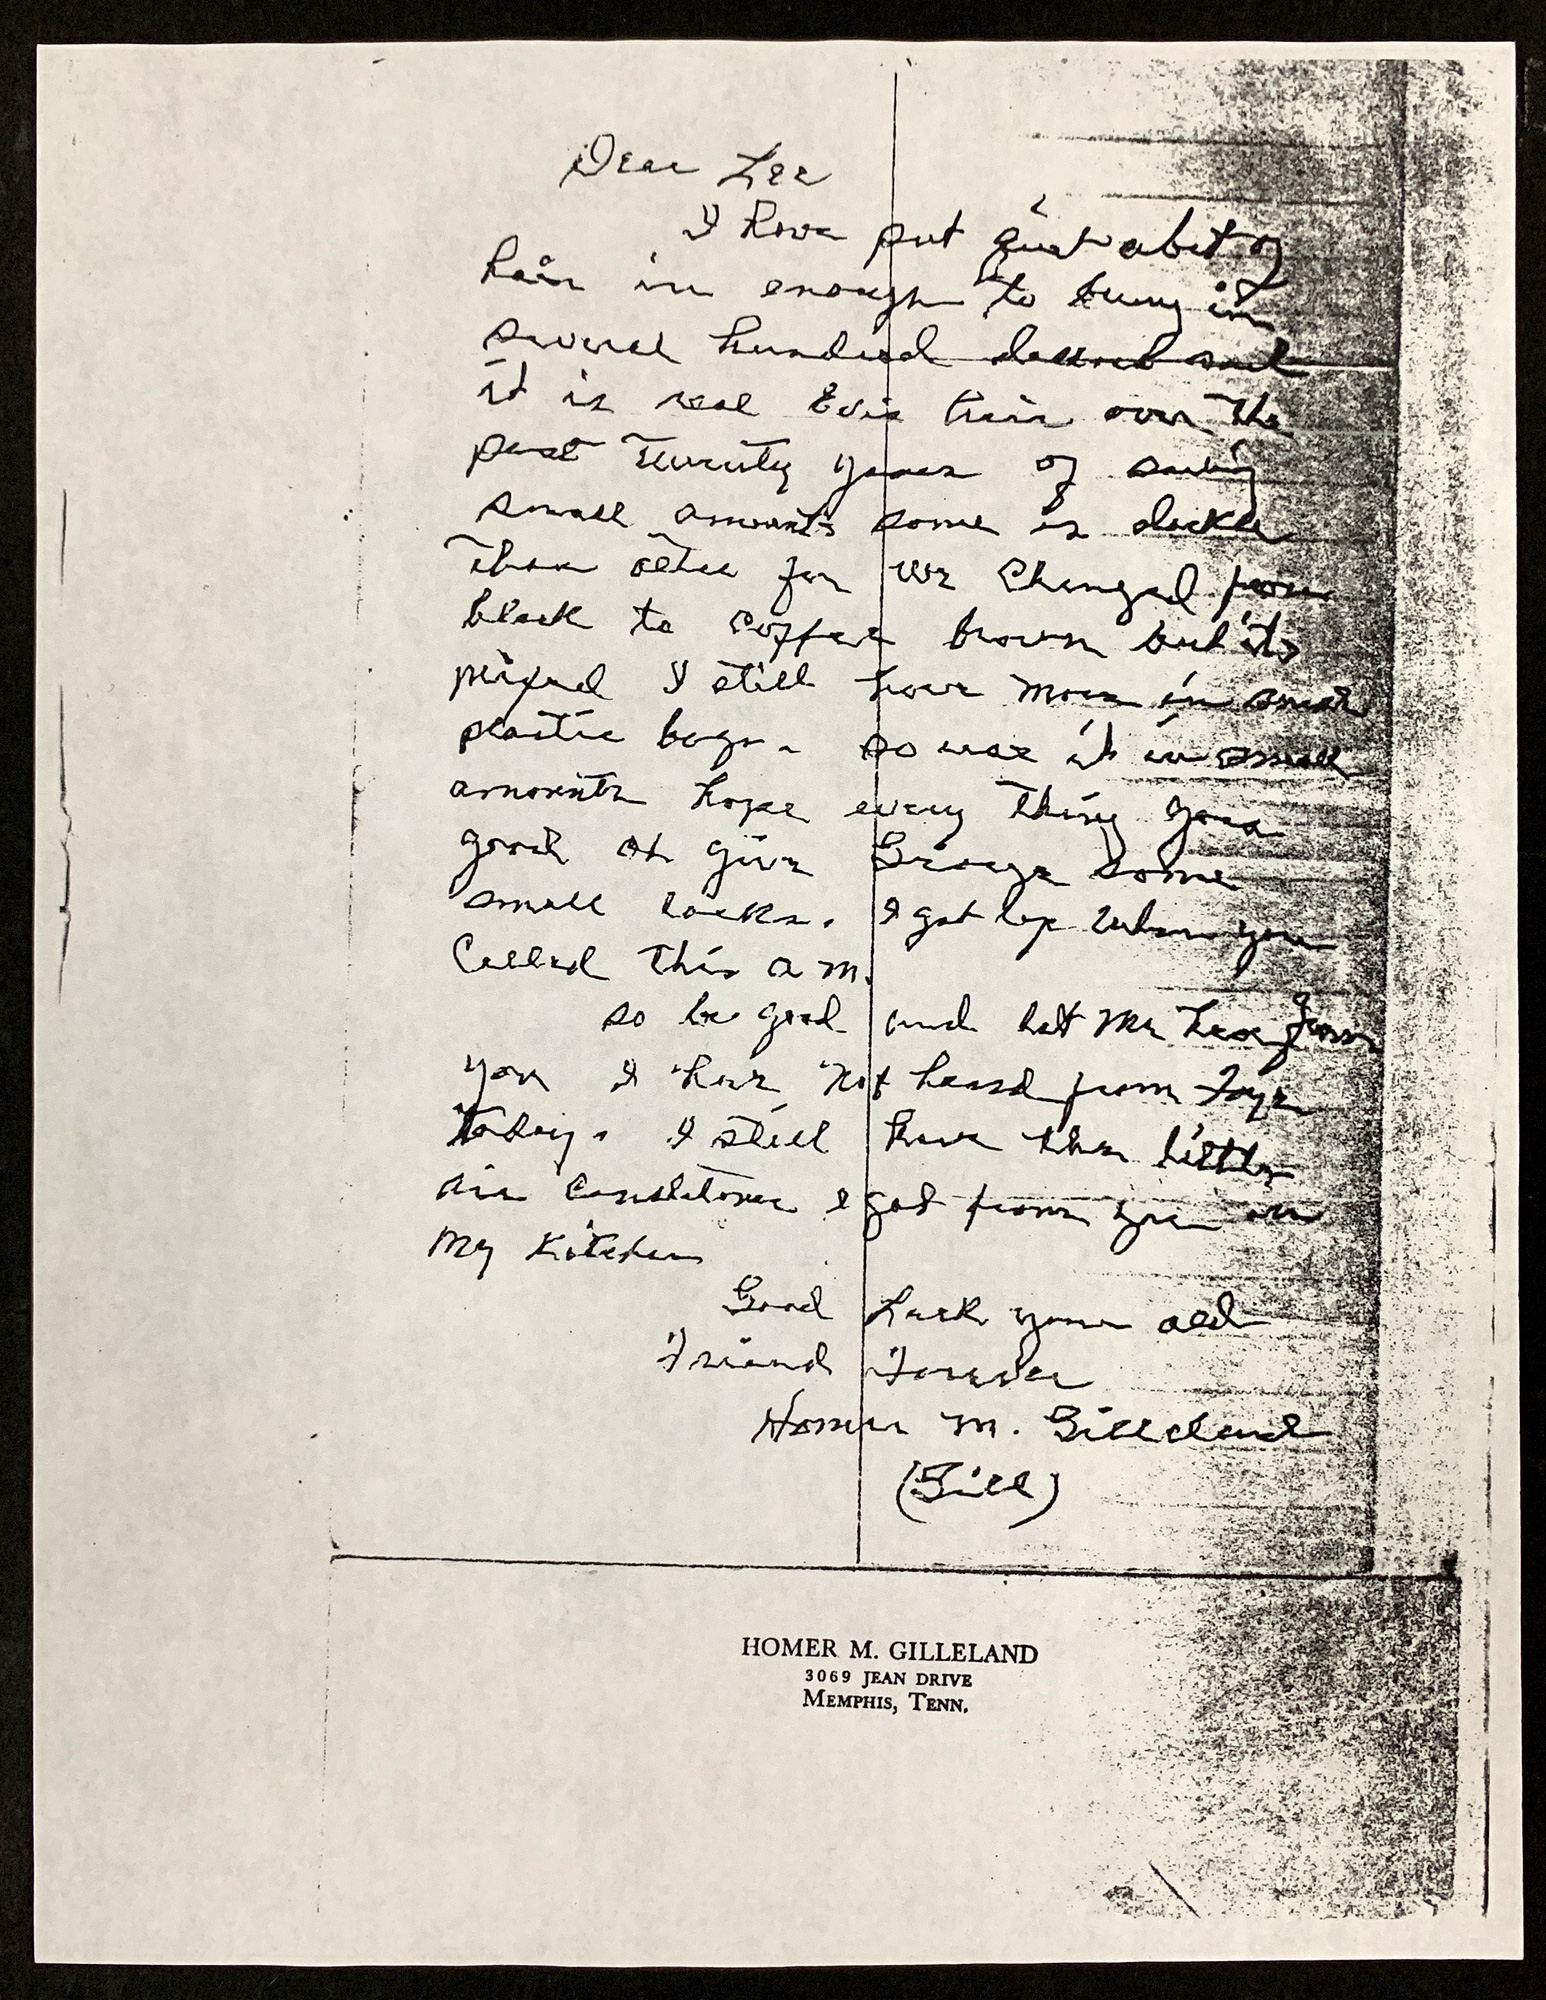 Dear Lee
I have put quit abit of
hair in enough to bring in
several hundred dollars and
it is real Evis hair over the
past twenty years of saving
small amounts some is darker
than other for we changed from
black to coffee brown but its
mixed I still have more in small
plastic bags. so use it in small
amounts hope every thing goes
good or give George some
small locks. I got up when you
called this a m.
so be good and let me hear from
you I have not heard from Faye
today. I still have the little
air conditoner I got from you in
my kitchen
Good luck your old
Friend Forever
Homer M. Gilleland
(Gill)
HOMER M. GILLELAND
3069 JEAN DRIVE
MEMPHIS, TENN.